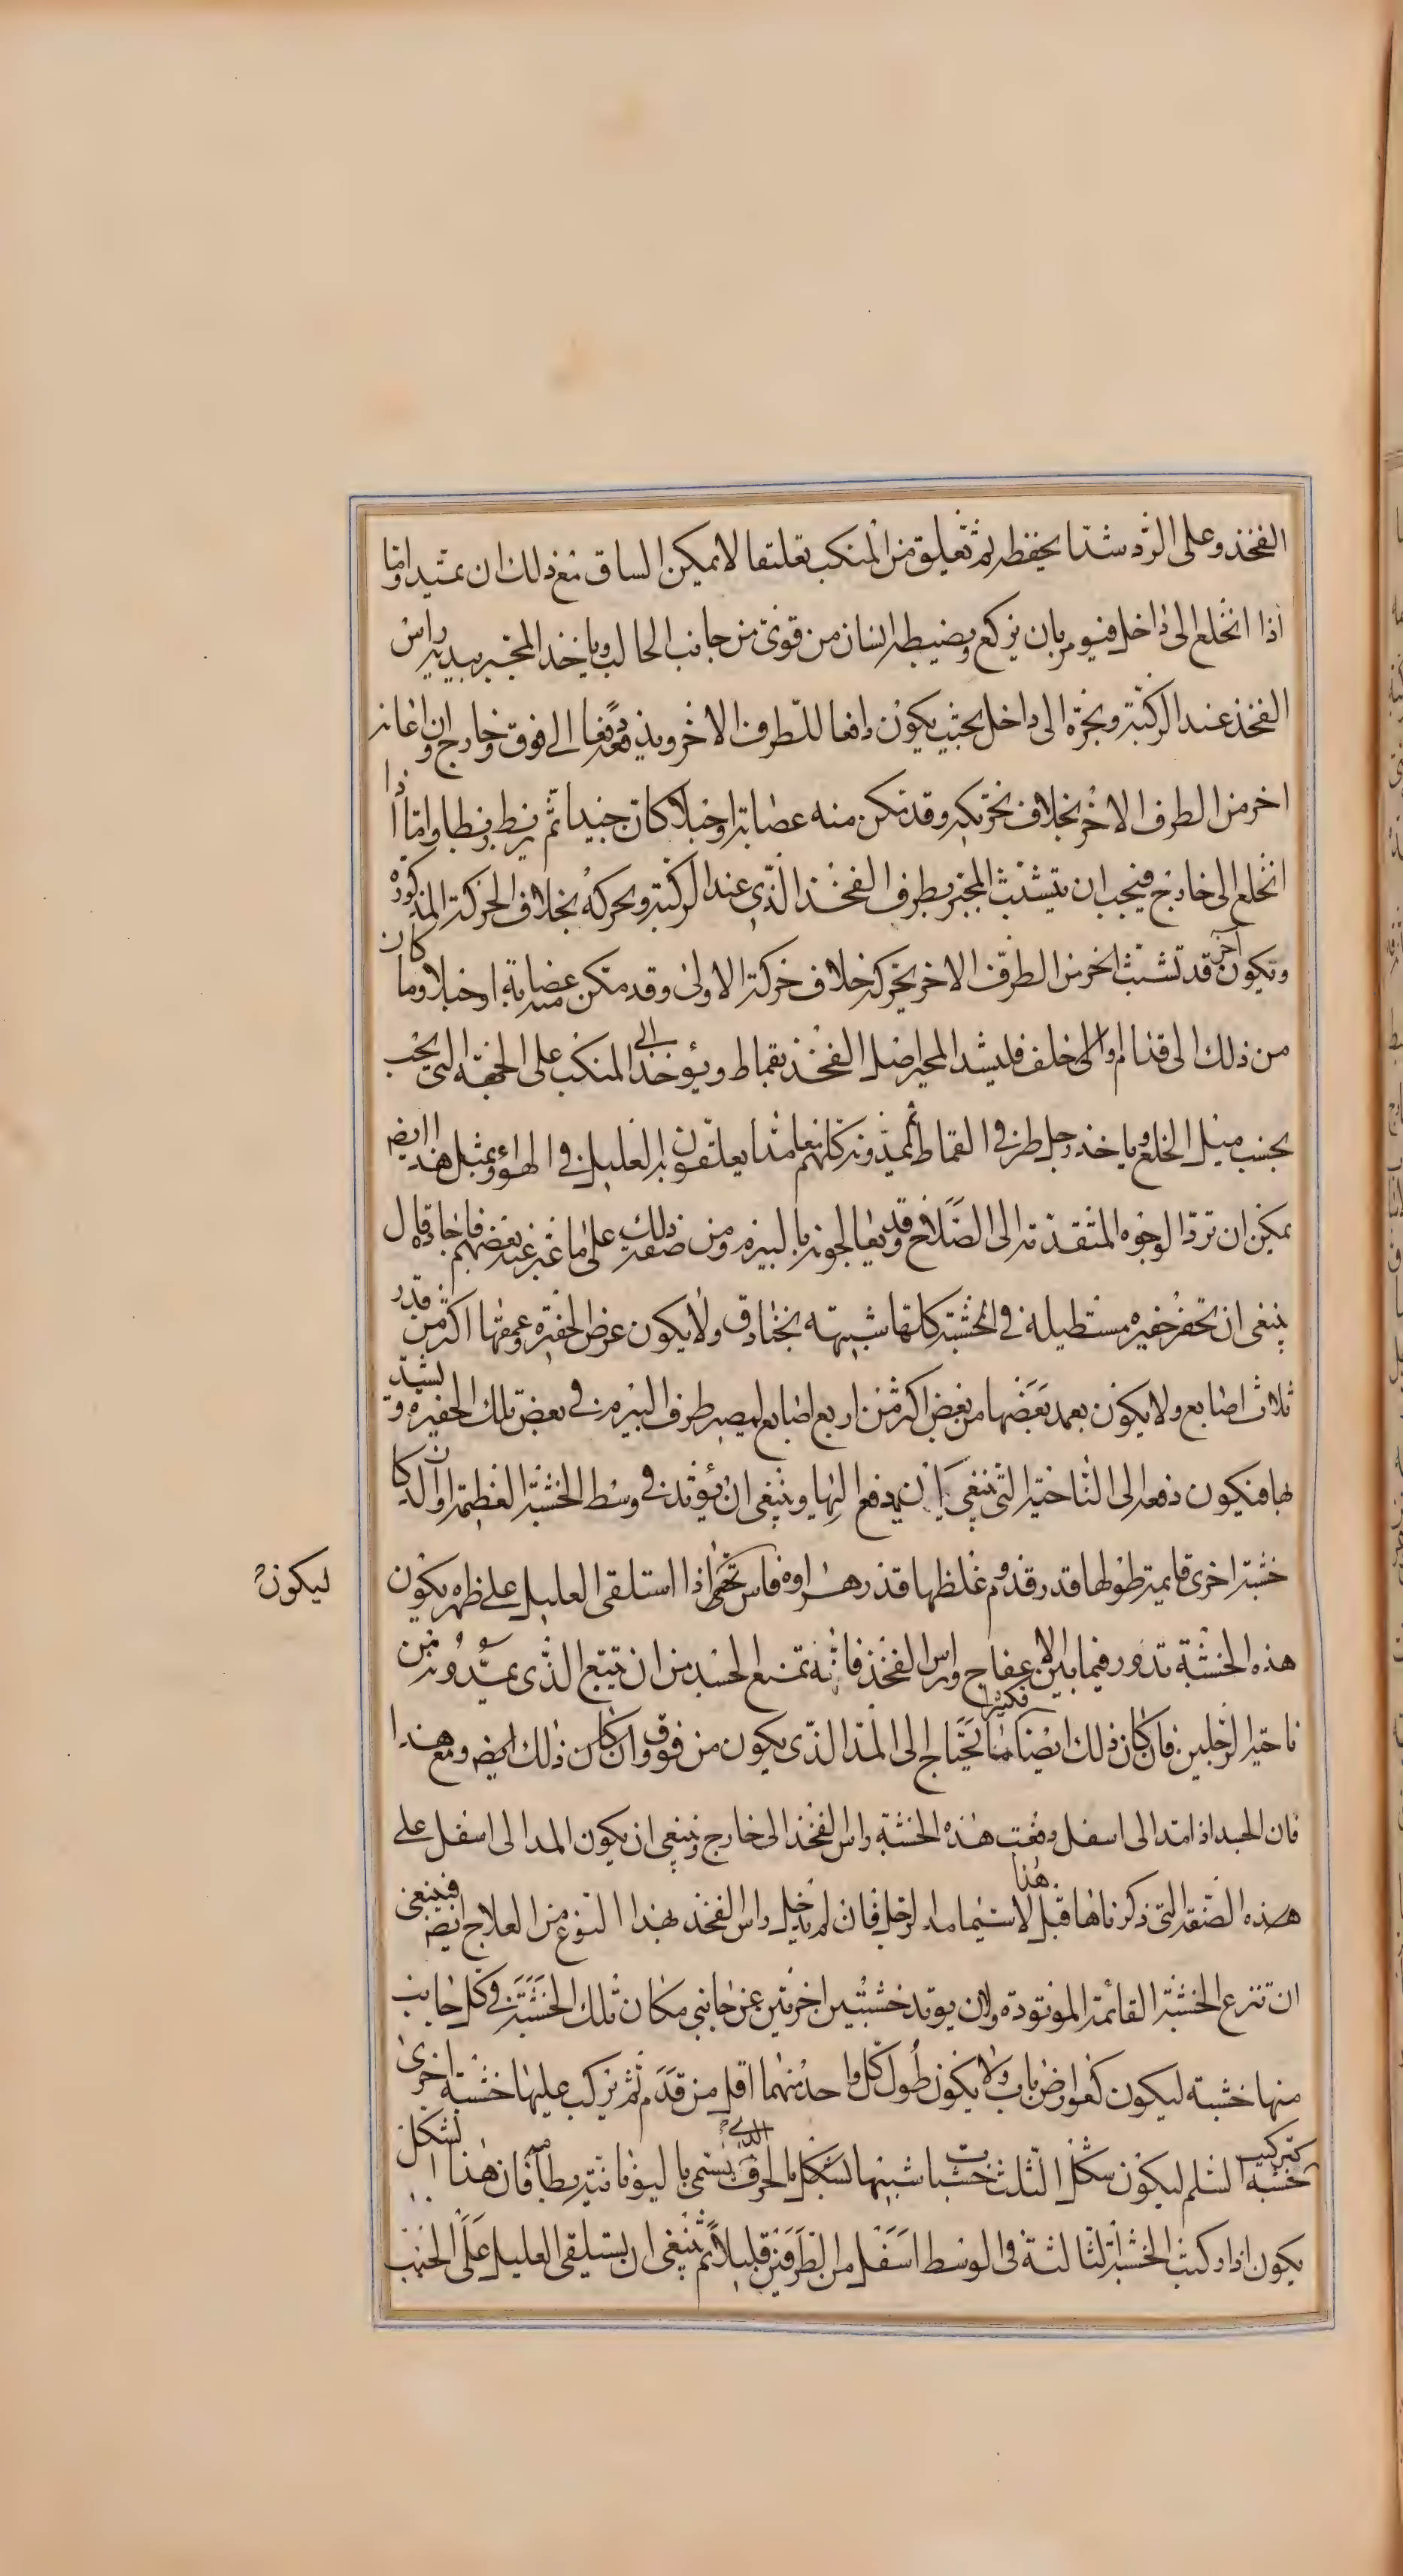 الفخذ وعلى الرد شدا يحفظه ثم تعليق من المنكب تعليقا لا يمكن الساق مع ذلك ان يمتد واما
اذا انخلع الى داخل فيومر بان يركع ويضبطه انسان من قوى من جانب الحالب وياخذ المجبر بيديه راس
الفخذ عند الركبة ويجره الى داخل بحيث يكون دافعا للطرف الاخر ويدفعه دفعا الى فوق وخارج وان اعانه
اخر من الطرف الاخر بخلاف تحريكه وقد تمكن منه عصابة او حبلا كان جيدا ثم يربط ربطا واما اذا
انخلع الى خارج فيجب ان يتشبث المجبر بطرف الفخذ الذى عند الركبة ويحركه بخلاف الحركة المذكورة
ويكون آخر قد تشبث اخر من الطرف الاخر يحركه خلاف حركة الاولى وقد مكن منه عصابة او حبلا وما كان
من ذلك الى قدام او الى خلف فليشد المجبر اصل الفخذ بقماط ويؤخذ الى المنكب على الجهة التى يجب
بحسب ميل الخلع وياخذ رجل طرف القماط ثم يمدونه كلهم معا مدا يعلقون به العليل فى الهواء وبمثل هذا ايضه
يمكن ان ترد الوجوه المتقدمة الى الصلاح وقد يعالجونه بالبيرم ومن صفة ذلك على ما عبر عنه بعضهم فاجاد قال
ينبغى ان تحفر حفيرة مستطيلة فى الخشبة كلها شبيهة بخنادق ولا يكون عرض الحفيرة وعمقها اكثر من قدر
ثلاث اصابع ولا يكون بعد بعضها من بعض اكثر من اربع اصابع ليصير طرف البيرم فى بعض تلك الحفيرة ويشد
بها فيكون دفعه الى الناحية التى ينبغى ان يدفع اليها وينبغى ان يؤتد فى وسط الخشبة العظيمة او الدكان
خشبة اخرى قايمة طولها قدر قدم وغلظها قدر هراوة فاس حتى اذا استلقى العليل على ظهره يكون
ليكون
هذه الخشبة تدور فيما بين الاعفاج وراس الفخذ فانه تمنع الجسد من ان يتبع الذى يمدونه من
ناحية الرجلين فان كان ذلك ايضا فكثيرا ما يحتاج الى المد الذى يكون من فوق وان كان ذلك ايضه ومع هذا
فان الجسد اذا امتد الى اسفل دفعت هذه الخشبة راس الفخذ الى خارج وينبغى ان يكون المد الى اسفل على
هذه الصفة التى ذكرناها قبل هذا لاسيما مد الرجل فان لم يدخل راس الفخذ بهذا النوع من العلاج ايضه فينبغى
ان تنزع الخشبة القائمة الموتودة وان يوتد خشبتين اخرتين عن جانبى مكان تلك الخشبة فى كل جانب
منها خشبة ليكون كعوارض باب ولا يكون طول كل واحد منهما اقل من قدم ثم يركب عليها خشبة اخرى
كتركيب خشبة السلم ليكون شكل الثلث خشبات شبيها بشكل بالحرف الذى يسمى باليونانية يطا فان هذا الشكل
يكون اذا ركبت الخشبة الثالثة فى الوسط اسفل من الطرفين قليلا ثم ينبغى ان يستلقى العليل على الجنب